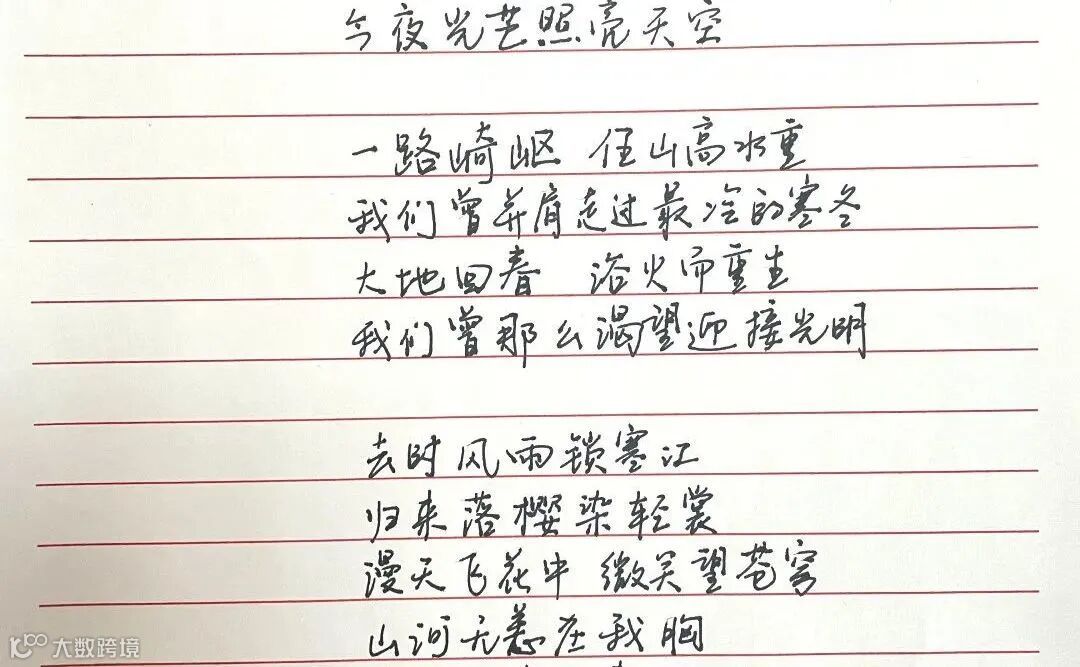 今夜光芒照亮天空
一路崎岖 任山高水重
我们曾并肩走过最冷的寒冬
大地回春 浴火而重生
我们曾那么渴望迎接光明
去时风雨锁寒江
归来落樱染轻裳
漫天飞花中 微笑望苍穹
山河无恙在我胸
大数跨境